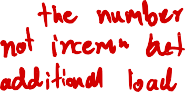 the number
not increm but
additional load